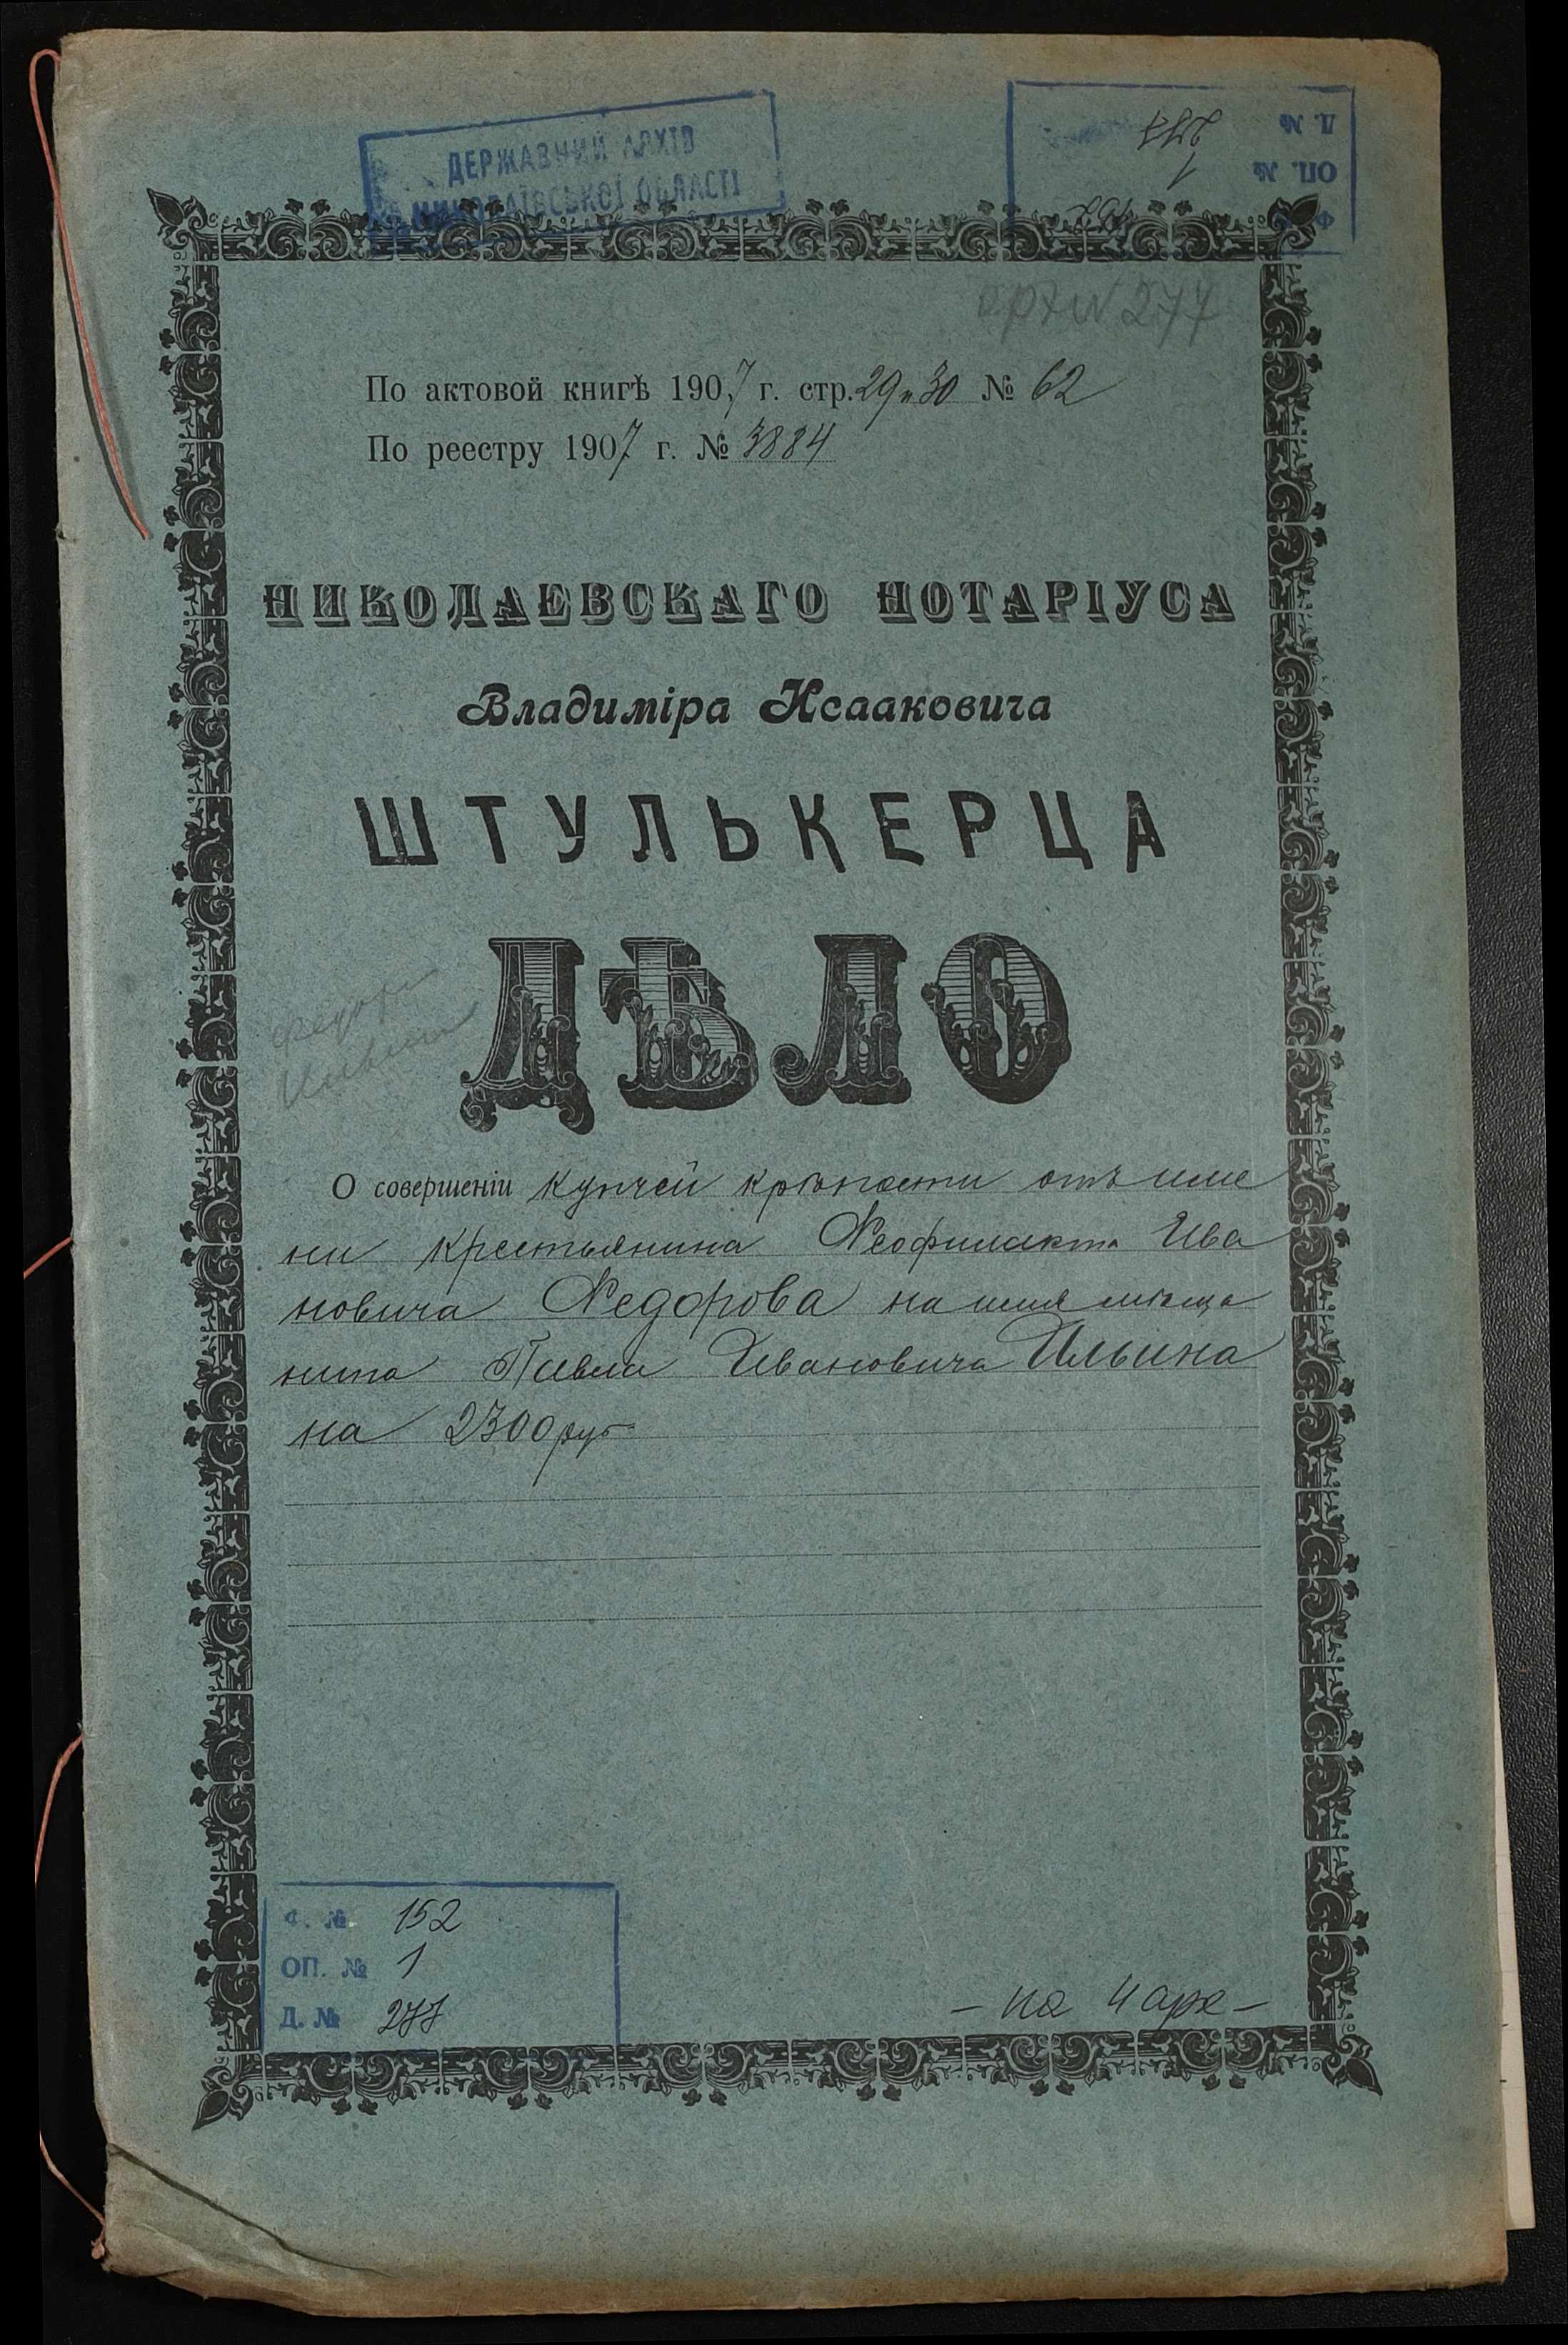 ДЕРЖАВНИЙ АРХІВ
МИКОЛАЇВСЬКОЇ ОБЛАСТІ
Ф. № 152
ОП. № 1
Д. № 277
арх № 277
По актовой книгѣ 1907 г. стр. 29 и 30 № 62
По реестру 1907 г. № 3884
НИКОЛАЕВСКАГО НОТАРІУСА
Владиміра Исааковича
ШТУЛЬКЕРЦА
ДѢЛО
О совершеніи купчей крѣпости отъ име
ни крестьянина Ѳеофилакта Ива
новича Ѳедорова на имя мѣща
нина Павла Ивановича Ильина
на 2300 руб
Ф. № 152
ОП. № 1
Д. № 277
– на 4 арк –